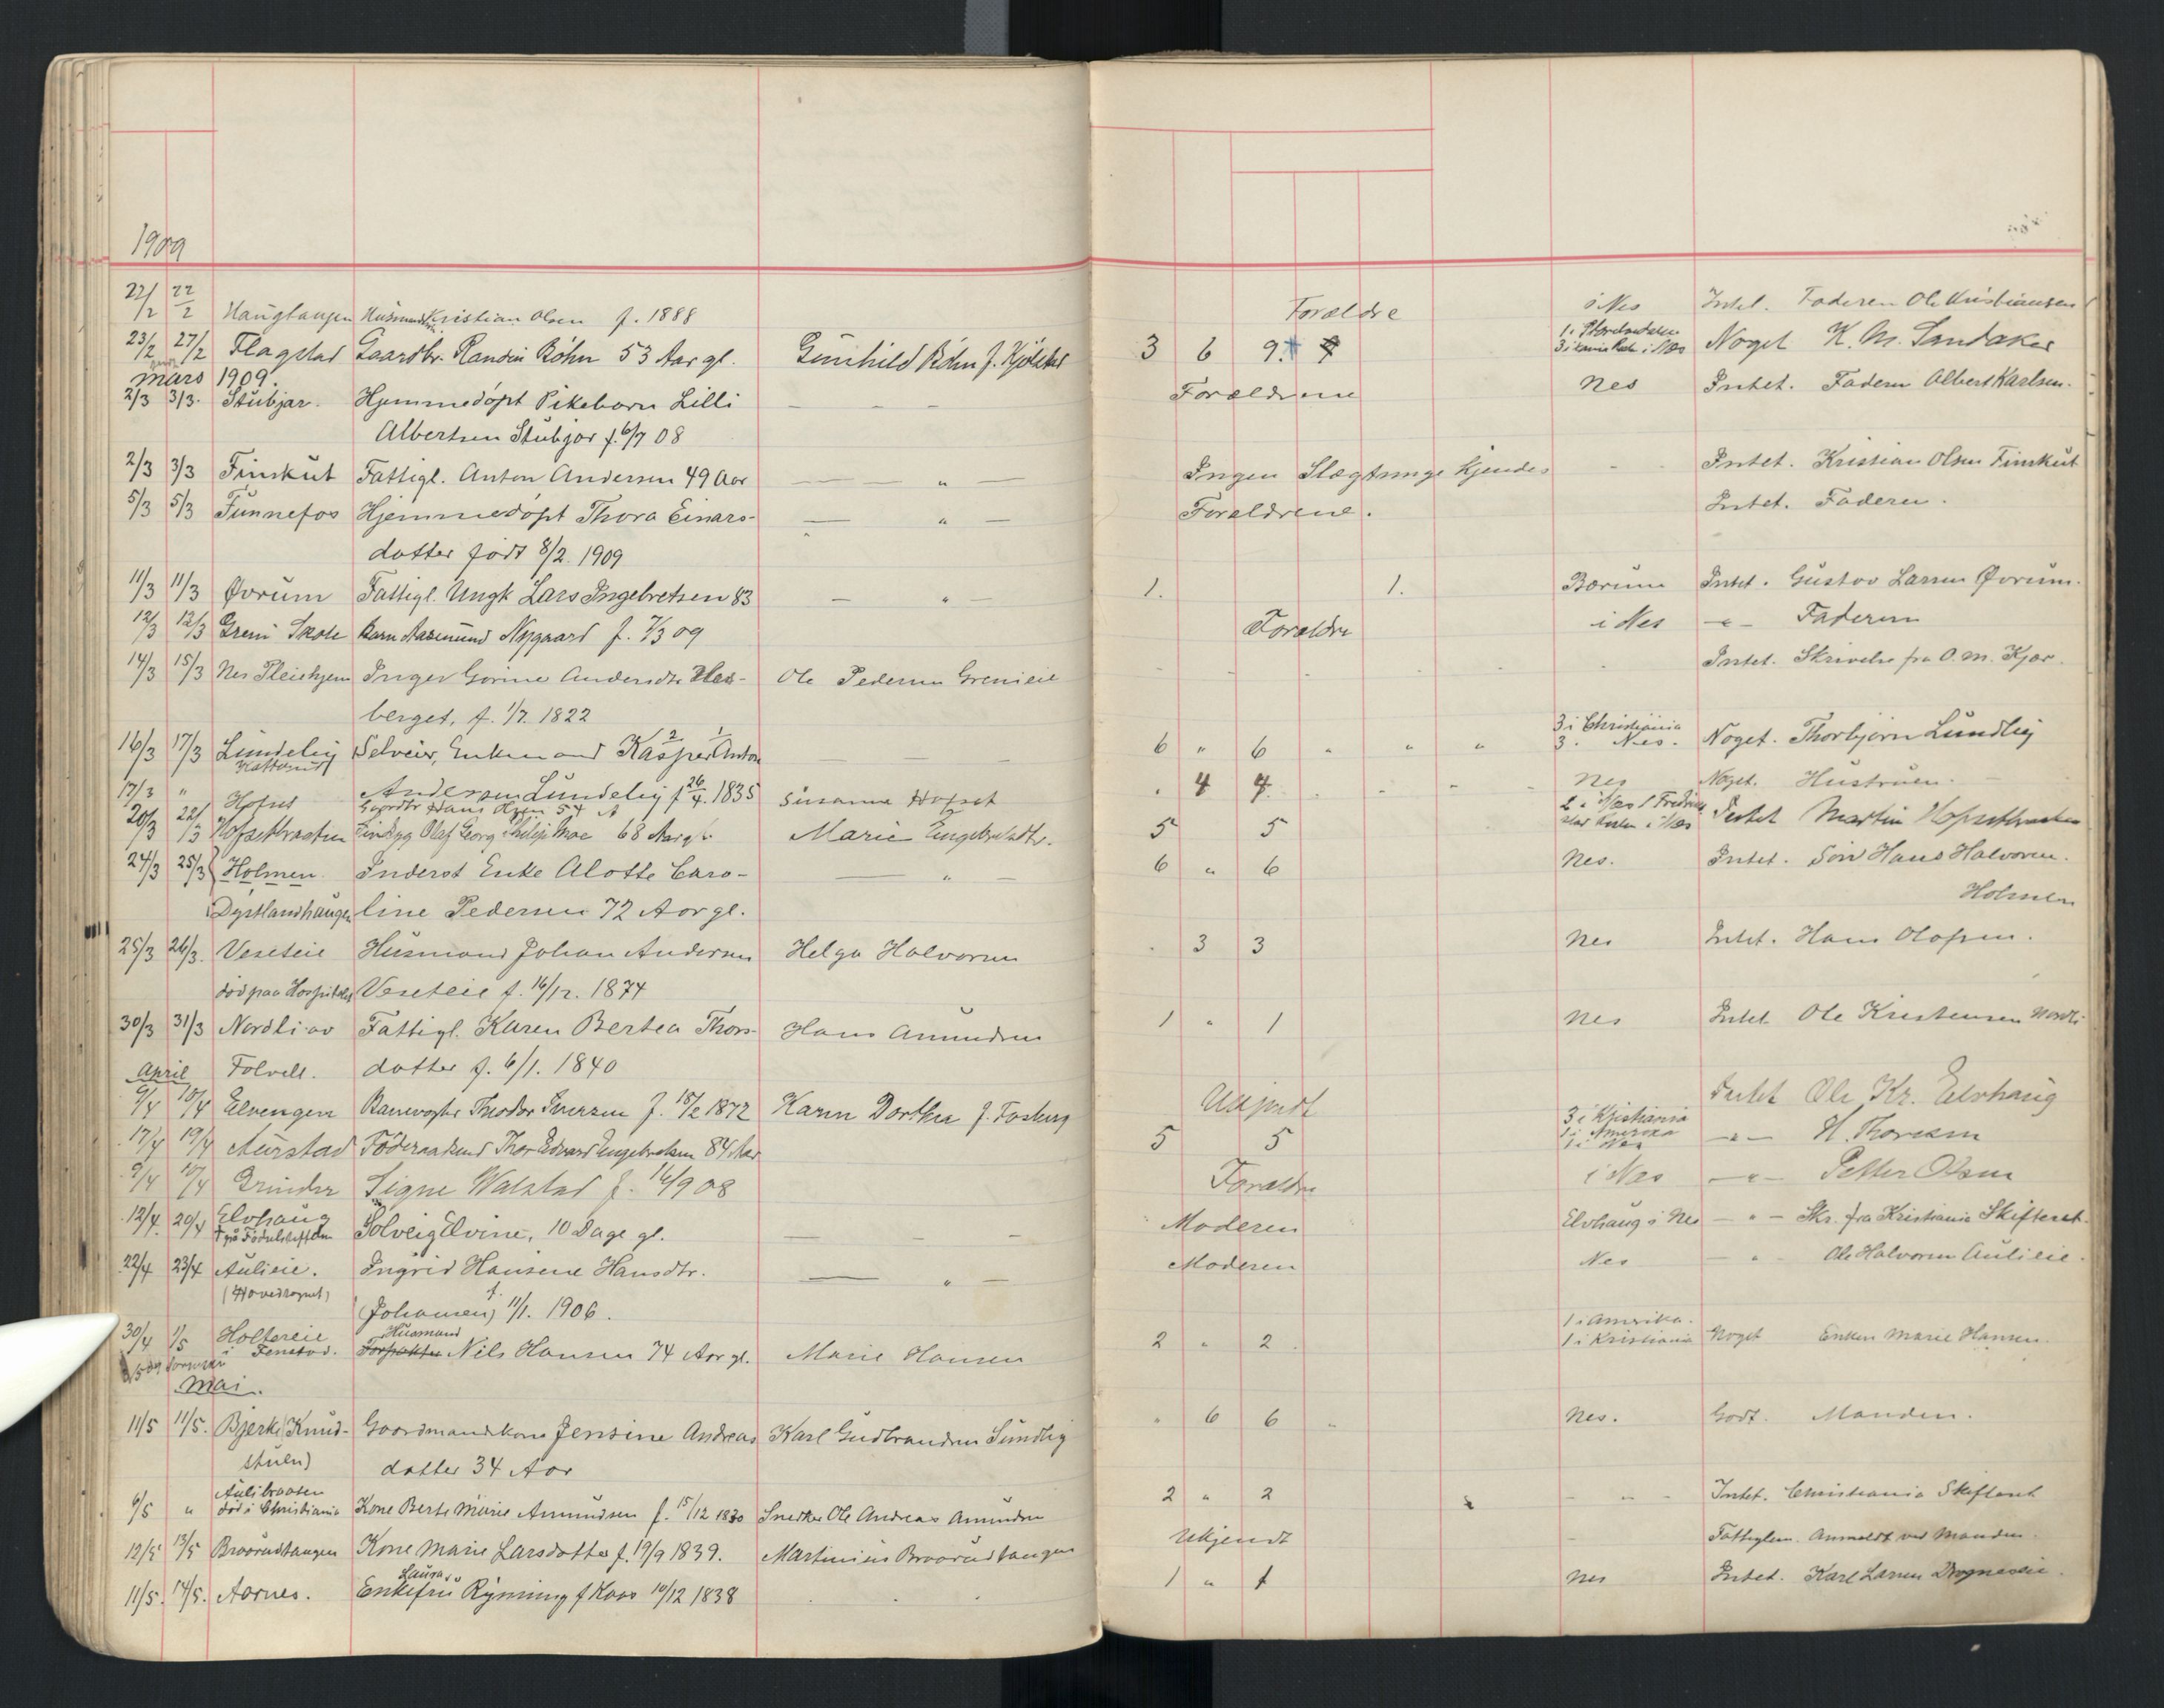 1909
22/2 22/2 Hauglangen Husmand Kristian Olsen f. 1888 Forældre i Nes Intet. Faderen Ole Kristiansen
23/2 27/2 Flagstad Gaardbr. Randin Bøhn 53 Aar gl. Gunhild Bøhn f. Kjølstad 3 6 9. Noget K. M. Sandaker
mars 1909.
2/3 3/3. Stubjar. Hjemmedøpt Pikebarn Lilli Forældrene Nes Intet. Faderen Albert Karlsen.
Albertsen Stubjar f. 6/7 08
2/3 3/3 Finskut Fattigl. Anton Andersen 49 Aar — " — Ingen Slægtninge kjendes Intet. Kristian Olsen Finskut
5/3 5/3 Funnefos Hjemmedøpt Thora Einars- — " — Forældrene. Intet. Faderen.
datter født 8/2. 1909
11/3 11/3 Øvrum Fattigl. Ungk Lars Ingebretsen 83 — " — 1. 1. Bærum Intet. Gustav Larsen Øvrum.
12/3 12/3 Greni Skole Barn Aasmund Nygaard f. 7/3 09 Forældre i Nes — " — Faderen
14/3 15/3 Nes Pleiehjem Inger Gorine Andersdtr Hes- Ole Pedersen Grenieie Intet. Skrivelse fra O. M. Kjær.
berget, f. 1/7. 1822
16/3 17/3 Lundelig Selveier, Enkemand Kasper Anton 6 " 6 " " " 3 i Christiania
3 . Nes. Noget. Thorbjørn Lundlig
Andersen Lundelig f 26/4. 1835
17/3 " Hofset Gaardbr Hans Olsen 54 A Susanna Hofset 4 4 Nes Noget. Hustruen.
20/3 22/3 Hofsetbraaten Olaf Georg Philip Moe 68 Aar gl. Marie Engebretsdtr. 5 5 Intet Martin Hofsetbraaten
24/3 25/3 Holmen. Inderst Enke Alotte Caro- — " — 6 " 6 Nes. Intet. Søn Hans Halvorsen.
Holmen
Dystlandhaugen line Pedersen 72 Aar gl.
25/3 26/3. Veseteie Husmand Johan Andersen Helga Halvorsen 3 3 Nes Intet. Hans Olafsen.
død paa Hospitalet Veseteie f. 16/12. 1874
30/3 31/3 Nordli av Fattigl. Karen Bertea Thors- Hans Amundsen 1 " 1 Nes Intet Ole Kristensen Nordli
April Folvell. datter f. 6/1. 1840
9/4 10/4 Elvengen Banevogter Theodor Iversen f. 18/2 1872 Karen Dorthea f. Fosberg Ukjendt Intet Ole Kr. Elvhaug
17/4 19/4 Aurstad Føderaadsmd Thor Edvard Engebretsen 84 Aar 5 5 3 i Kristiania
1 i Amerika
1 i Nes — " — H. Thoresen
9/4 10/4 Grinder Signe Walstad f. 16/9 08 Forældre i Nes — " — Petter Olsen
12/4. 20/4 Elvhaug
Solveig Elvine, 10 Dage gl. Moderen Elvhaug i Nes — " — Skr. fra Kristiania Skifteret.
22/4 23/4 Aulieie. Ingrid Hansine Hansdtr. — " — Moderen Nes " Ole Halvorsen Aulieie.
(Hovedsognet) (Johansen) f. 11/1. 1906.
30/4 1/5 Holtereie Husmand 1 i Amerika.
i Fenstad. Forpakter Nils Hansen 74 Aar gl. Marie Hansen 2 " 2 1 i Kristiania Noget Enken Marie Hansen.
Mai.
11/5 11/5. Bjerke (Knud- Gaardmandskone Jensine Andreas Karl Gudbrandsen Sundlig " 6 6 " Nes. Godt. Manden.
stuen) datter 34 Aar
6/5 " Aulibraaten
død i Christiania Kone Berte Marie Amundsen f. 15/12 1830 Snedker Ole Andreas Amundsen 2 " 2 — " — Intet. Christiania Skifteret
12/5 13/5 Braarudtangen Kone Marie Larsdatter f. 19/9 1839. Martinius Braarudtangen Ukjendt Fattiglem. Anmeldt ved Manden.
11/5. 14/5. Aarnes. Enkefru Laura Rynning f Koos 10/12 1838 1 " 1 Nes Intet. Karl Larsen Drogneseie.